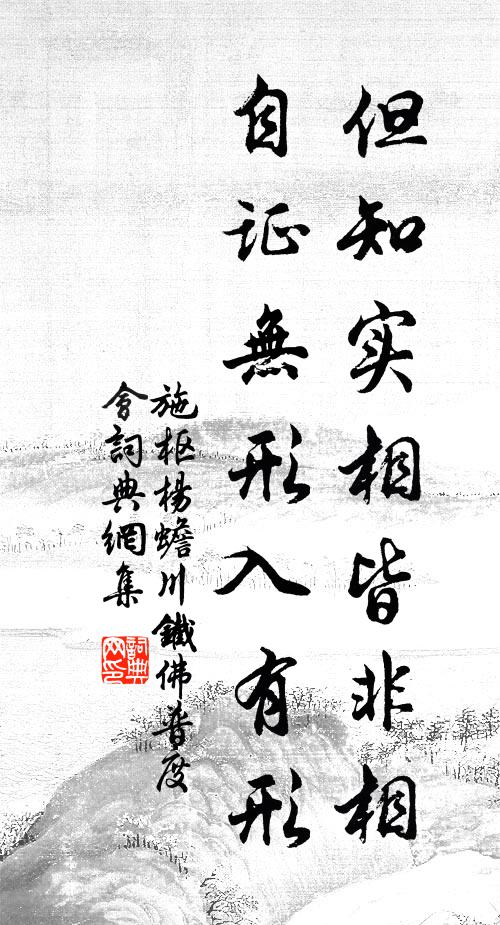 但知实相皆非相
自证無形入有形
施枢杨蟾川鐵佛普度
會詞典網集
詞典網印